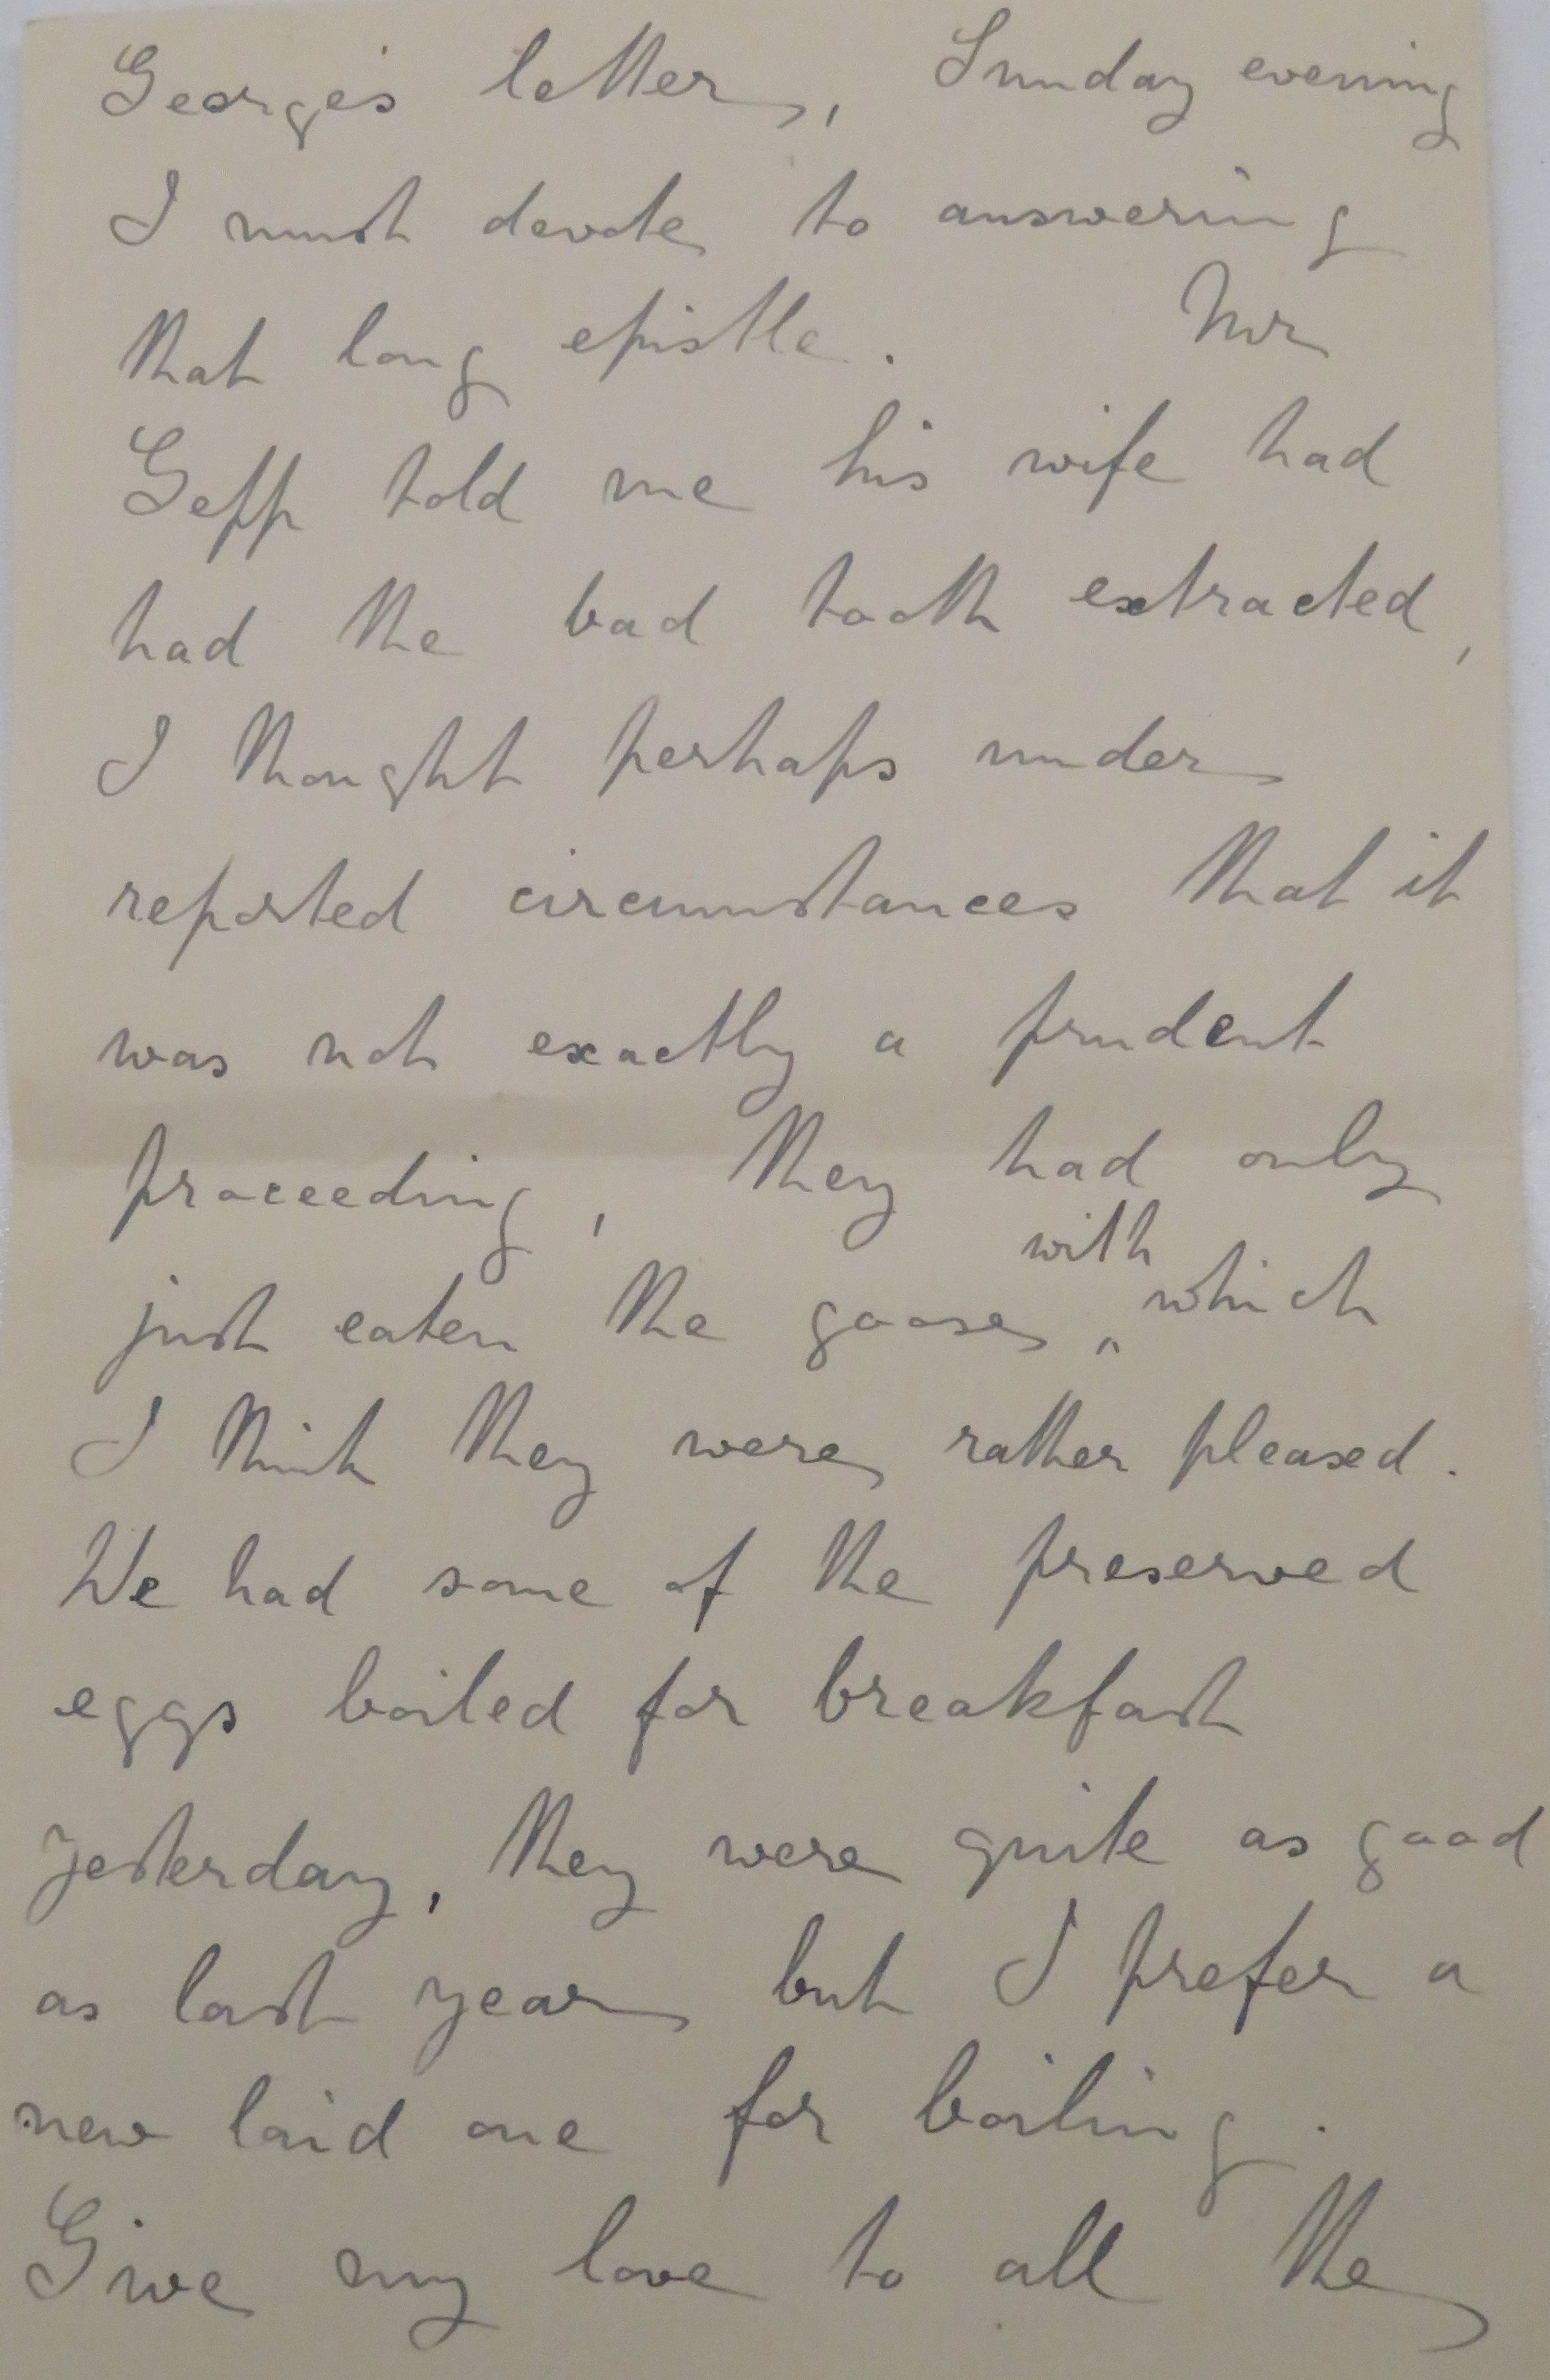 George's letter, Sunday evening
I must devote to answering
that long epistle. Mr
Gepp told me his wife had
had the bad tooth extracted,
I thought perhaps under
reported circumstances that it
was not exactly a prudent
proceeding, they had only
with
just eaten the goose, ^ which
I think they were rather pleased.
We had some of the preserved
eggs boiled for breakfast
yesterday, they were quite as good
as last year but I prefer a
new laid one for boiling.
Give my love to all the